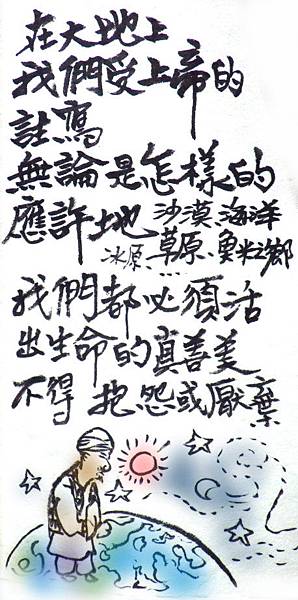 在大地上
我們受上帝的
註寫
無論是怎樣的
應許地 沙漠.海洋
冰原.草原.魚米之鄉
……
我們都必須活
出生命的真善美
不得抱怨或厭棄